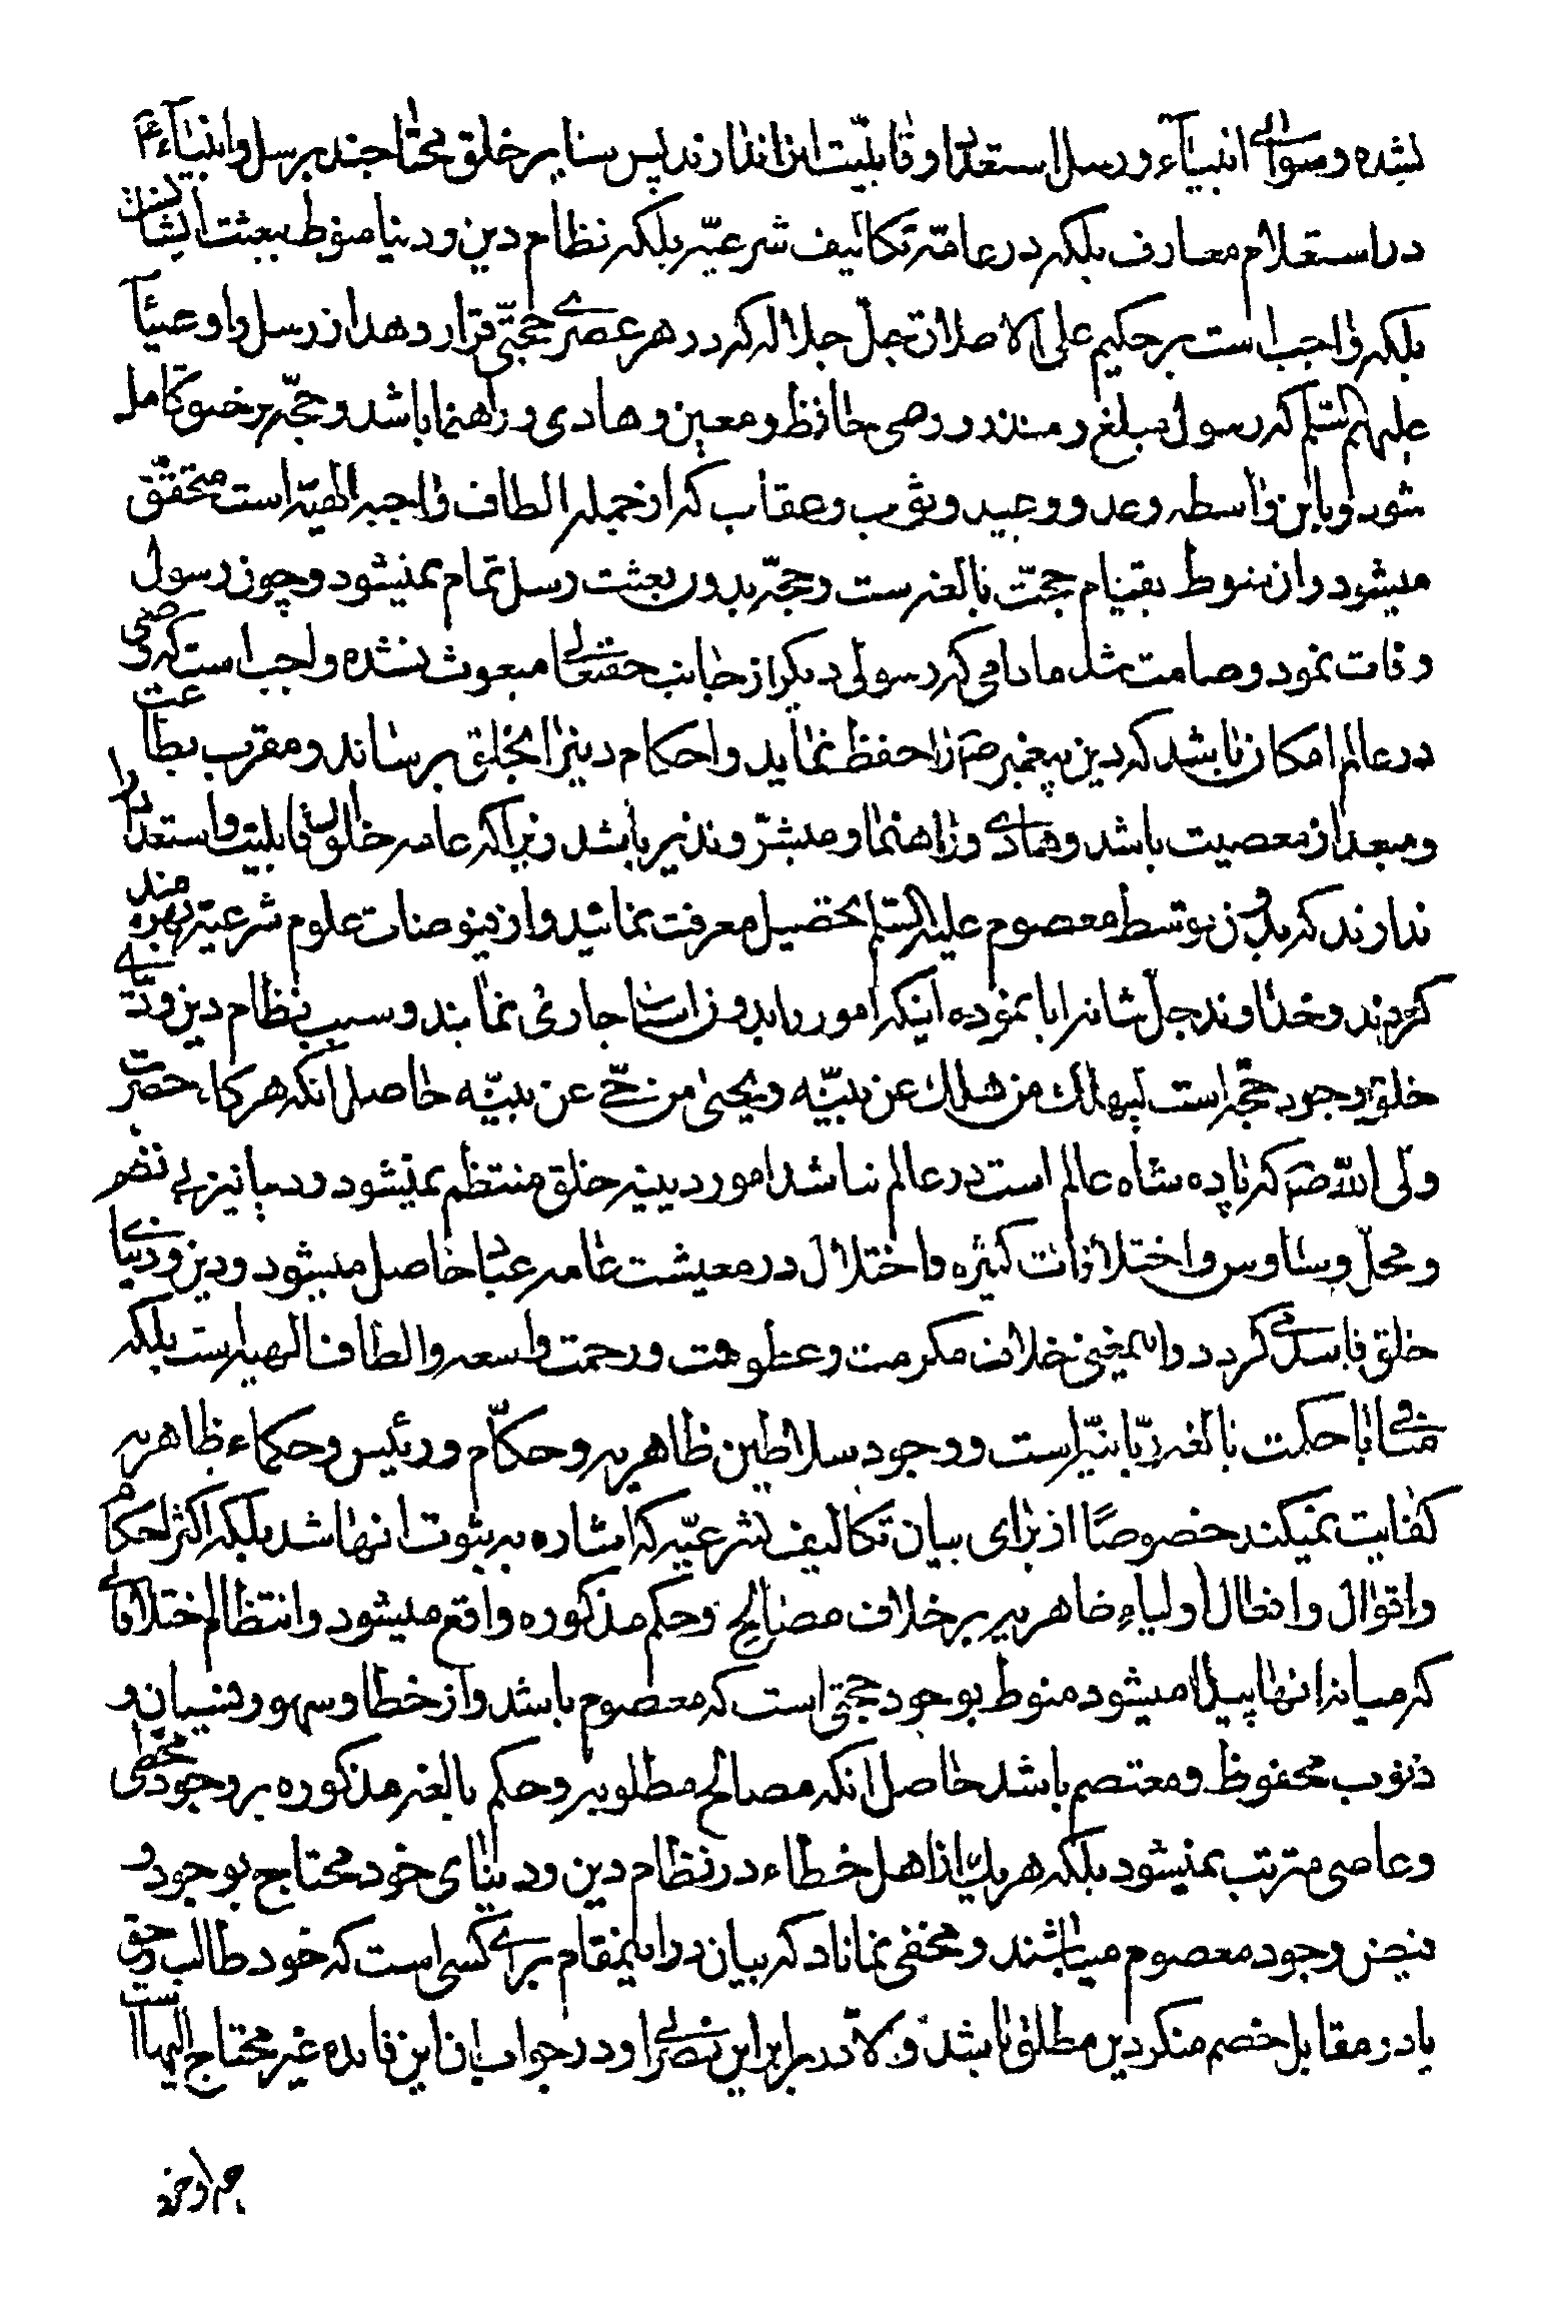 نشده و سوای انبیآء و رسل استعداد و قابلیّت این ندارند پس بنابر خلق محتاجند برسل و انبیآء ع
در استعلام معارف بلکه در عامّه تکالیف شرعیّه بلکه نظام دین و دنیا منوط ببعثت ایشان است
بلکه واجب است بر حکیم علی الاطلاق جلّ جلاله که در هر عصری حجّتی قرار دهد از رسل و اوصیآء
علیهم السّلم که رسول مبلغ و منذر و وصی حافظ و معین و هادی و راهنما باشد و حجّه بر خلق کامل
شود و باین واسطه وعد و وعید و ثوب و عقاب که از جمله الطاف واجبه الهیّه است متحقّق
میشود و ان منوط بقیام حجّت بالغه است و حجّه بدون بعثت رسل تمام نمیشود و چون رسول
وفات نمود و صامت شد مادامی که رسولی دیکر از جانب حقتعالی مبعوث نشده واجب است که وصی
در عالم امکان باشد که دین پیغمبر ص را حفظ نماید و احکام دینرا بخلق برساند و مقرب بطاعت
و مبعد از معصیت باشد و هادی و راهنما و مبشّر و نذیر باشد زیرا که عامه خلق قابلیت و استعداد انرا
ندارند که بدون توسط معصوم علیه السّلم تحصیل معرفت نمایند و از فیوضات علوم شرعیّه بهره مند
کردند و خداوند جلّ شانه ابا نموده اینکه امور را بدون اسباب جاری نمایند و سبب نظام دین و دنیای
خلق وجود حجّه است لیهلک من هلک عن بیّنه و یحیی من حیّ عن بیّنه حاصل انکه هرکاه حضرت
ولی الله ص که پادشاه عالم است در عالم نباشد امور دینیه خلق منتظم نمیشود و دنیا نیز بی نظم
و محلّ وساوس و اختلافات کثیره و اختلال در معیشت عامه عباد حاصل میشود و دین و دنیای
خلق فاسد میکردد و اینمعنی خلاف مکرمت و عطوفت و رحمت واسعه و الطاف الهیه است بلکه
منافی با حکمت بالغه ربّانیّه است و وجود سلاطین ظاهریه و حکّام و رئیس و حکماء ظاهریه
کفایت نمیکند خصوصًا از برای بیان تکالیف شرعیّه که اشاره به ثبوت انها شد بلکه اکثر احکام
و اقوال و افعال اولیاء ظاهریه بر خلاف مصالح و حکم مذکوره واقع میشود و انتظام اختلافاتی
که میانه انها پیدا میشود منوط بوجود حجّتی است که معصوم باشد و از خطا و سهو و نسیان و
ذنوب محفوظ و معتصم باشد حاصل انکه مصالح مطلوبه و حکم بالغه مذکوره بر وجود مخطی
و عاصی مترتب نمیشود بلکه هریک از اهل خطاء در نظام دین و دنیای خود محتاج بوجود و
فیض وجود معصوم میباشند و مخفی نماناد که بیان در اینمقام برای کسی است که خود طالب دین حق
یا در مقابل خصم منکر دین مطلق باشد و الّا در برابر این نصاری و در جواب ان این فایده غیر محتاج الیها است